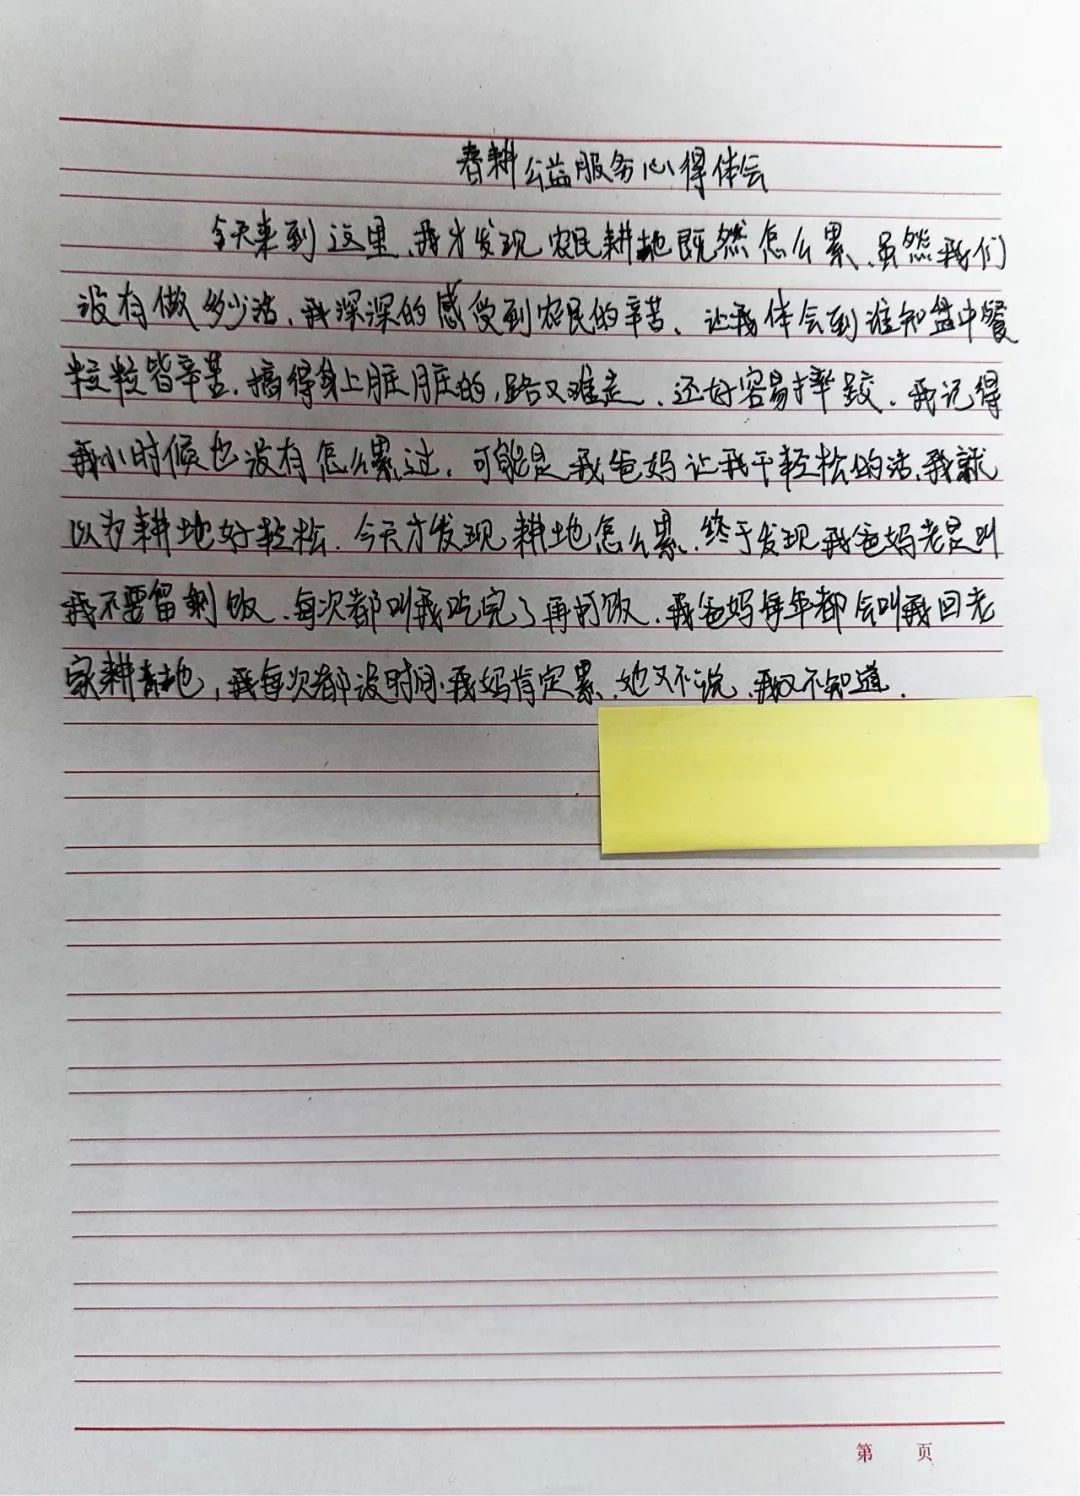 春耕公益服务心得体会
今天来到这里、我才发现农民耕地既然怎么累、虽然我们
没有做多少活、我深深的感受到农民的辛苦、让我体会到谁知盘中餐
粒粒皆辛苦. 搞得身上脏脏的, 路又难走、还好容易摔跤. 我记得
我小时候也没有怎么累过. 可能是我爸妈让我干轻松的活、我就
以为耕地好轻松. 今天才发现耕地怎么累、终于发现我爸妈老是叫
我不要留剩饭、每次都叫我吃完了再打饭、我爸妈每年都会叫我回老
家耕地, 我每次都没时间、我妈肯定累、她又不说、我又不知道.
第 页